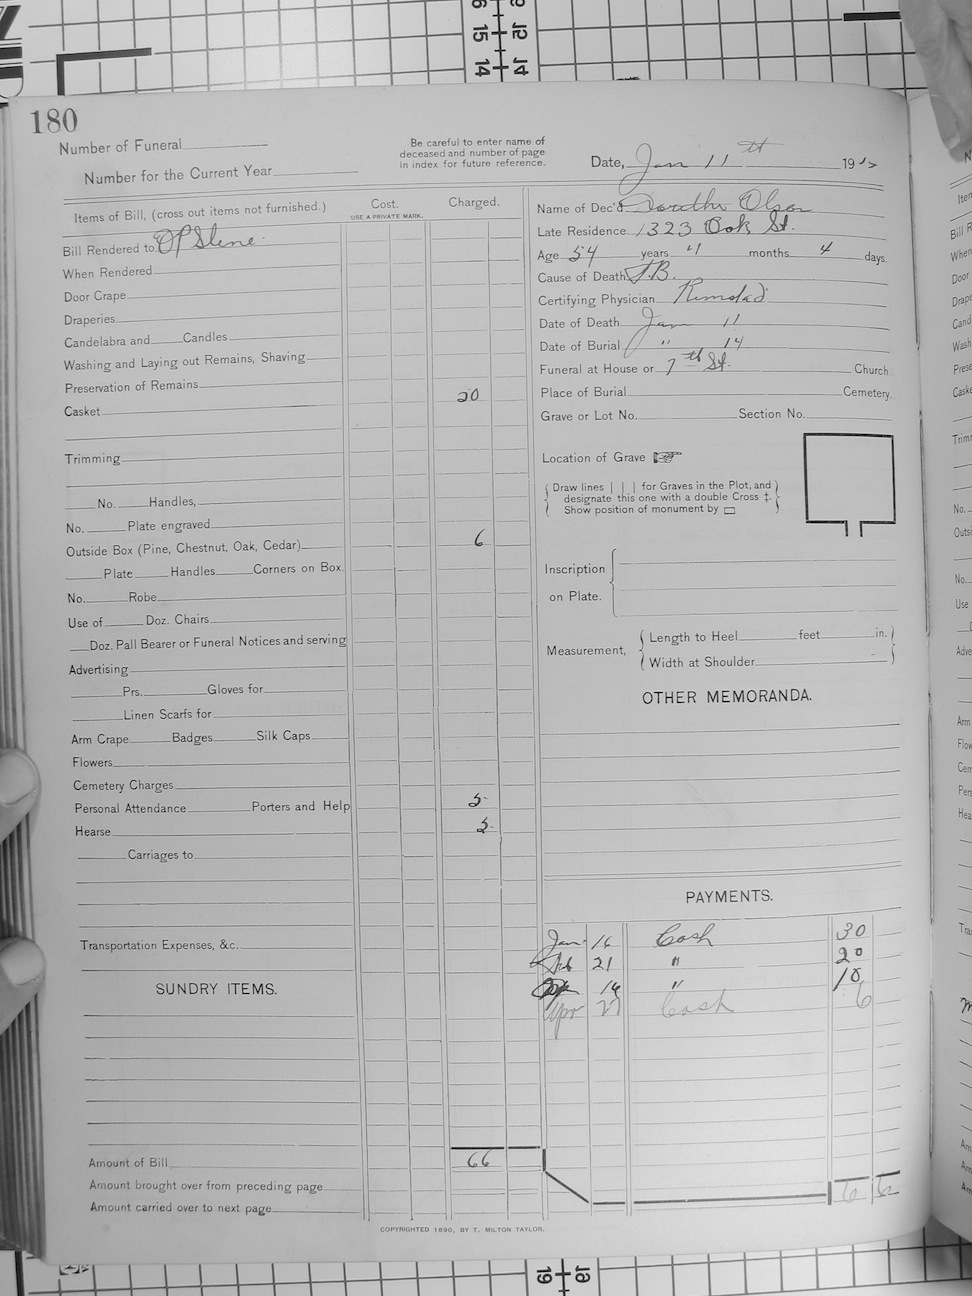 180
Number of Funeral
Number for the Current Year
Be careful to enter name of
deceased and number of page
in index for future reference.
Date, Jan 11th 19
Items of Bill, (cross out items not furnished.)
Cost.
USE A PRIVATE MARK.
Charged.
Bill Rendered to
When Rendered
Door Crape
Draperies
Candelabra and Candles
Washing and Laying out Remains, Shaving
Preservation of Remains
Casket 50
Trimming
No. Handles,
No. Plate engraved
Outside Box (Pine, Chestnut, Oak, Cedar) 6
Plate Handles Corners on Box.
No. Robe
Use of Doz. Chairs
Doz. Pall Bearer or Funeral Notices and serving
Advertising
Prs. Gloves for
Linen Scarfs for
Arm Crape Badges Silk Caps
Flowers
Cemetery Charges
Personal Attendance Porters and Help 5
Hearse 5
Carriages to
Transportation Expenses, &c.
SUNDRY ITEMS.
Amount of Bill 66
Amount brought over from preceding page
Amount carried over to next page
Name of Dec'd Olson
Late Residence 1323 Oak St.
Age 54 years 4 months 4 days.
Cause of Death T.B.
Certifying Physician
Date of Death Jan 11
Date of Burial " 14
Funeral at House or 7th St. Church
Place of Burial Cemetery.
Grave or Lot No. Section No.
Location of Grave
Draw lines | | | for Graves in the Plot, and
designate this one with a double Cross ‡.
Show position of monument by
Inscription
on Plate.
Measurement,
Length to Heel feet in.
Width at Shoulder
OTHER MEMORANDA.
PAYMENTS.
Jan 16 Cash 30
Feb 21 " 20
16 " 10
Apr 27 Cash 6
66
COPYRIGHTED 1890, BY T. MILTON TAYLOR.